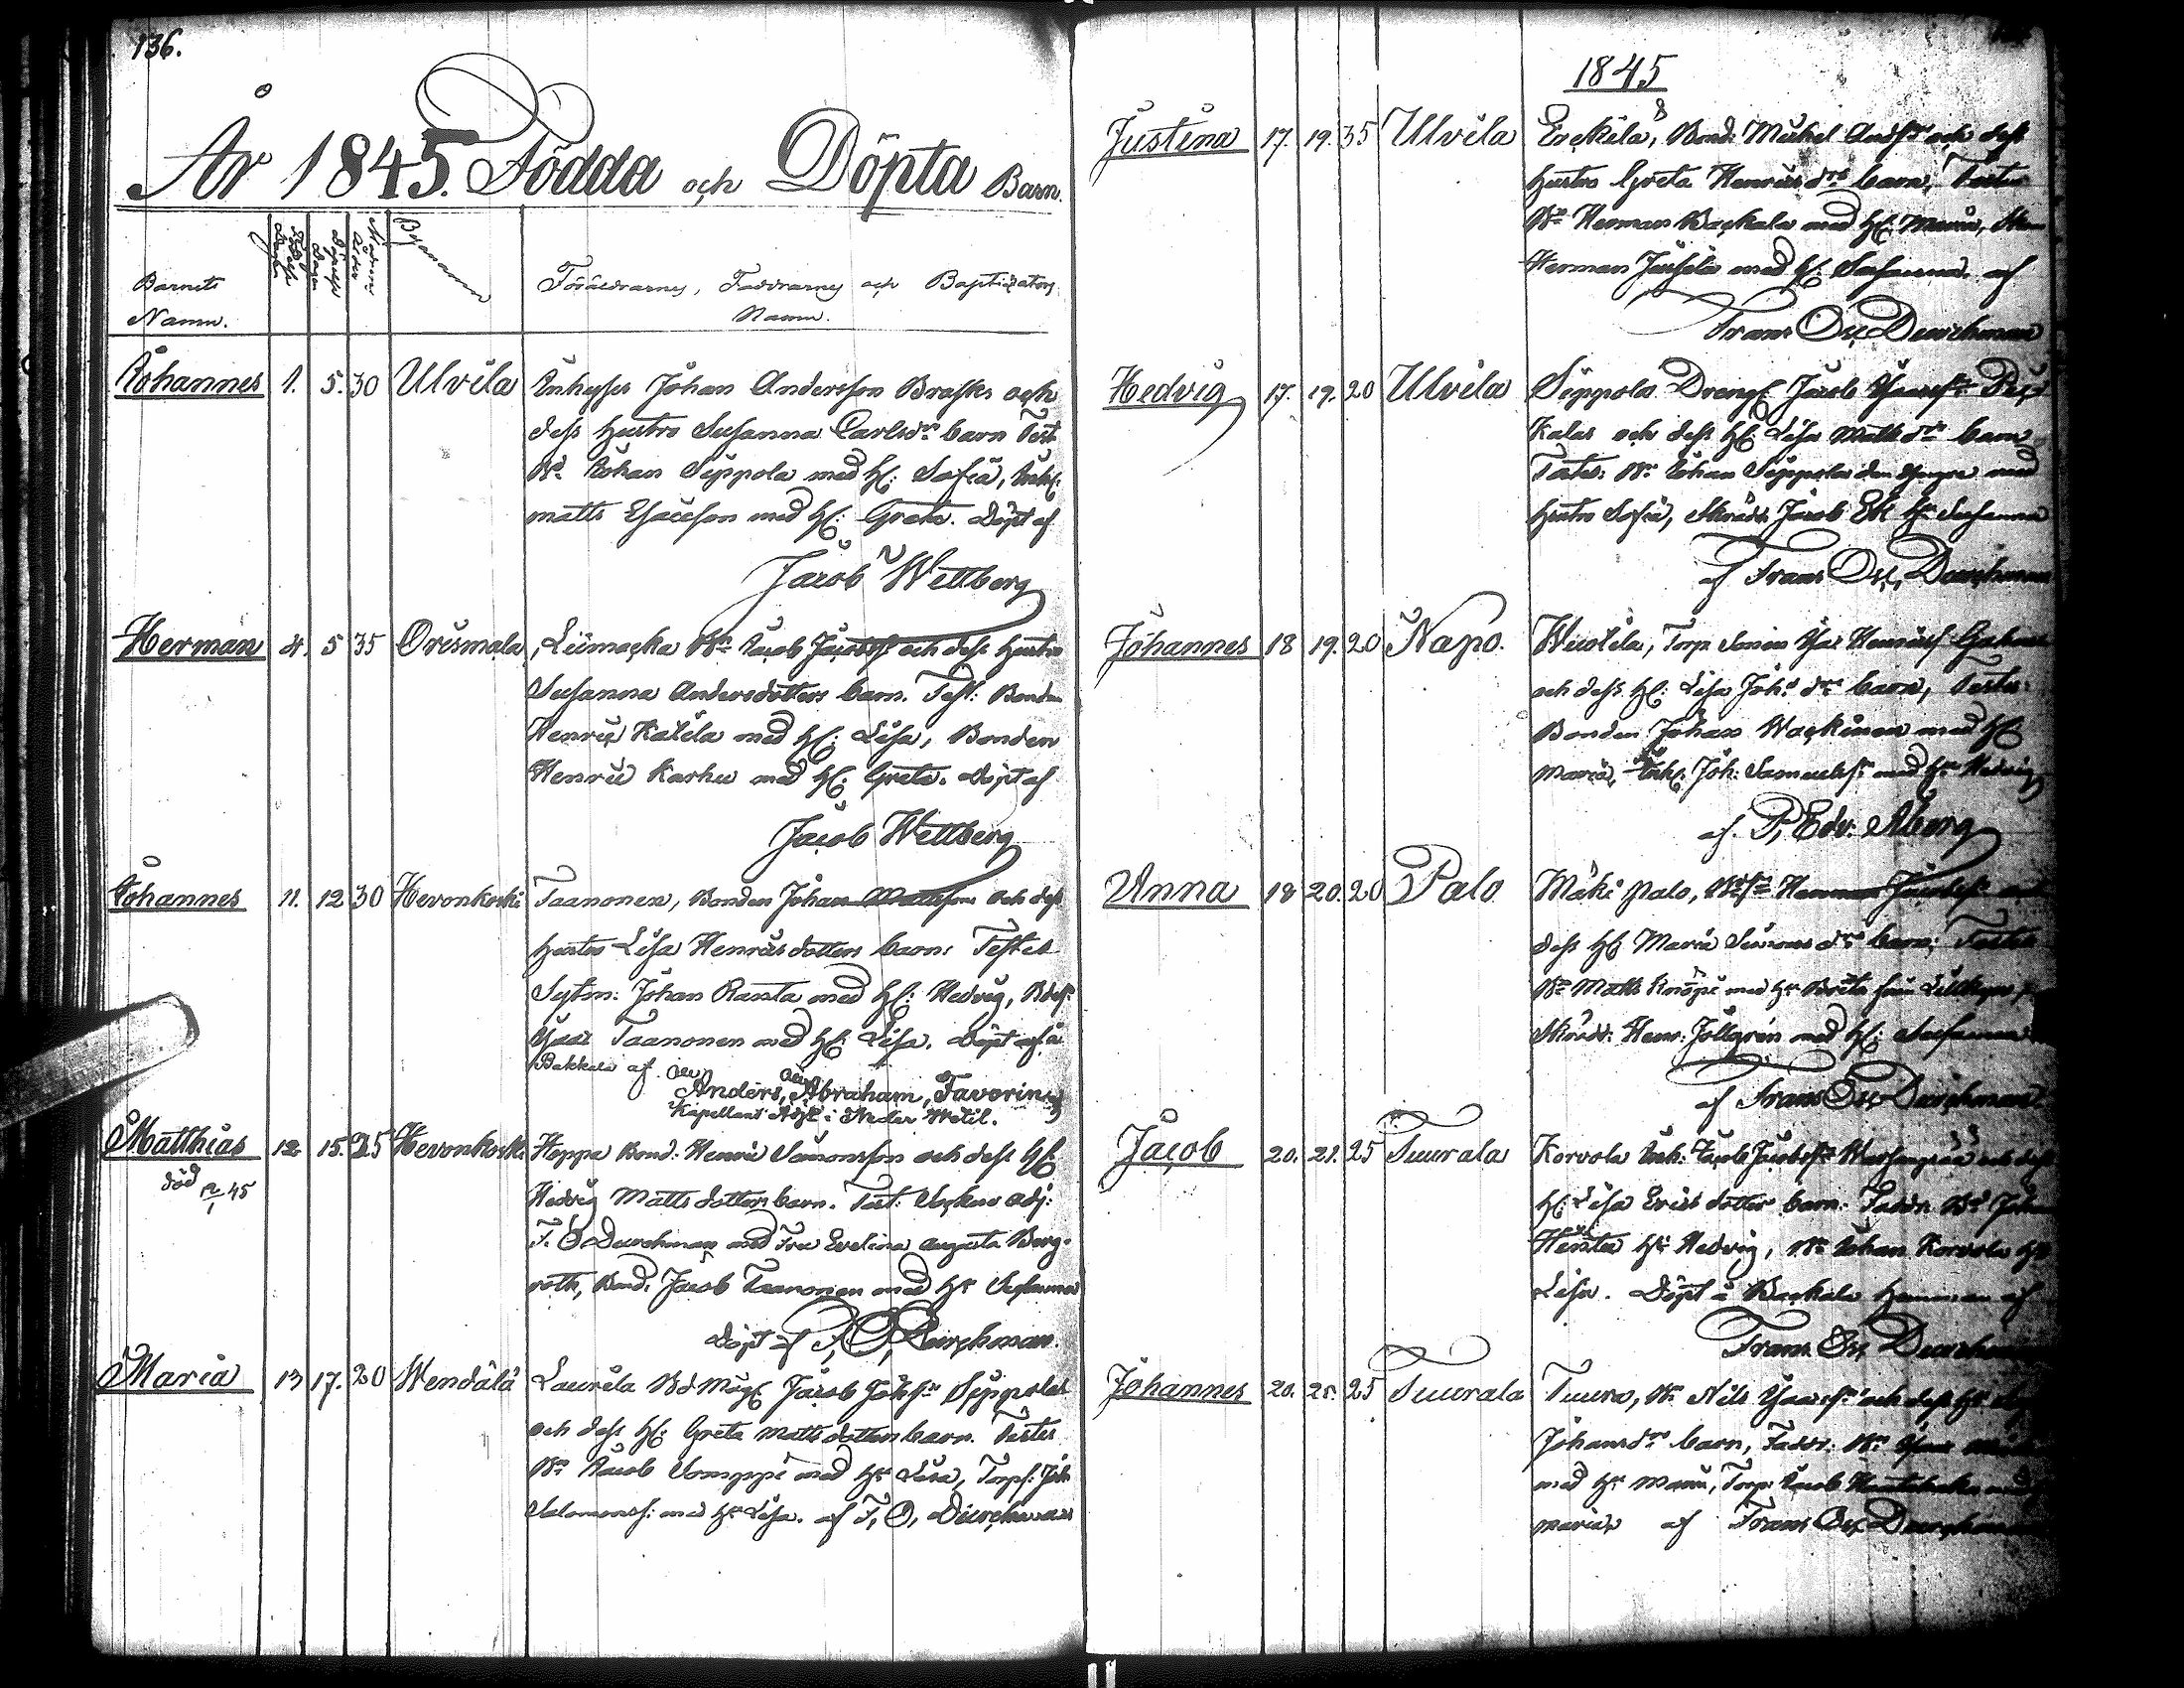 136.
År 1845. Födda och Döpta Barn.
Barnets Namn.
Födelse Dagen
Döpelse Dagen
Modrens ålder
Bynamn
Föräldrarnes, Faddrarnes och Baptizators Namn.
Johannes 1. 5. 30 Ulvila Inhyses Johan Andersson Brasks och
dess hustru Susanna Carlsdr barn Test
Bd. Johan Seppola med H: Sofia, Inh:
Matts Esaiesson med H: Greta. Döpt af
Jacob Wettberg
Herman 4. 5 35 Orismala, Liimacka Bn Jacob Jacobss och dess hustru
Susanna Andersdotters barn. Test: Bonden
Henric Katila med H: Lisa, Bonden
Henric Karhu med H: Greta. Döpt af
Jacob Wettberg
Johannes 11. 12 30 Hevonkoski Taanonen, Bonden Johan Mattsson och dess
hustru Lisa Henricsdotters barn: Testes
Sytm: Johan Ranta med H: Hedvig, Bdes:
Isac Taanonen med H: Lisa. Döpt af å
Bakkala af
Anders, Abraham, Favorin,
Kapellans Adjt i Neder Wetil.
Matthias 12. 15. 25 Hevonkoski Hoppa Bond. Henric Simonsson och dess H:
död 45
Hedvig Mattsdotters barn. Test: Sockne adj:
F. O Durchman med Fru Evelina Augusta Berg-
roth, Bond. Jacob Taanonen med Hr Susanna
Döpt af F, O, Durchman.
Maria 13 17. 20 Wendälä Laurila Bd Måg: Jacob Johss Seppolas
och dess H: Greta Mattsdotters barn. Testes
Bn Jacob Somppi med Hr Lisa, Torp: Joh
Salomonss: med Hr Lisa. af F, O, Durchman
1845
Justina 17. 19. 35 Ulvila Erckila, Bond: Michel Andss och dess
Hustru Greta Henricsdrs barn, Testes
Bn Herman Backala med H: Maria,
Herman Jussila med H: Susanna. af
Frans Osc Durchman
Hedvig 17. 19. 20 Ulvila Seppola Dreng: Jacob Isacss
Kalas och dess H: Lisa Mattsdrs barn,
Testes: Bn Johan Seppola den yngre med
Hustru Sofia, Skrädd: Jacob Ek Hr Susanna
af Frans Osc, Durchman
Johannes 18 19. 20 Napo. Wuotila, Torp Sonen Isac Henricss
och dess H: Lisa Johs drs barn, Testes:
Bonden Johan Wäckinen med H:
Maria, Inh: Joh: Samuelss: med Hr Hedvig
af. P, Edv: Åberg
Anna 18 20. 20 Palo Mäki Palo, Bdss Herman Jacobss och
dess H: Maria Simons drs barn; Testes
Bn Matts Knöpi med Hr Brita från
Skrädd: Henr: Jollgren med H: Susanna
af Frans Osc Durchman
Jacob 20. 21. 25 Tuurala Korvola Inh: Jacob Jacobss och dess
H: Lisa Ericsdotter barn: Faddr. Bd Johan
Hr Hedvig, Bn Johan Korvola Hr
Lisa. Döpt å Backala Hemman af
Frans Osc Durchman
Johannes 20. 21. 25 Tuurala Tuura, Bn Nils Isacss och dess Hr
Johansdrs barn, Faddr: Bn Isac
med Hr Maria, Torp: Jacob
Maria, af Frans Osc Durchman